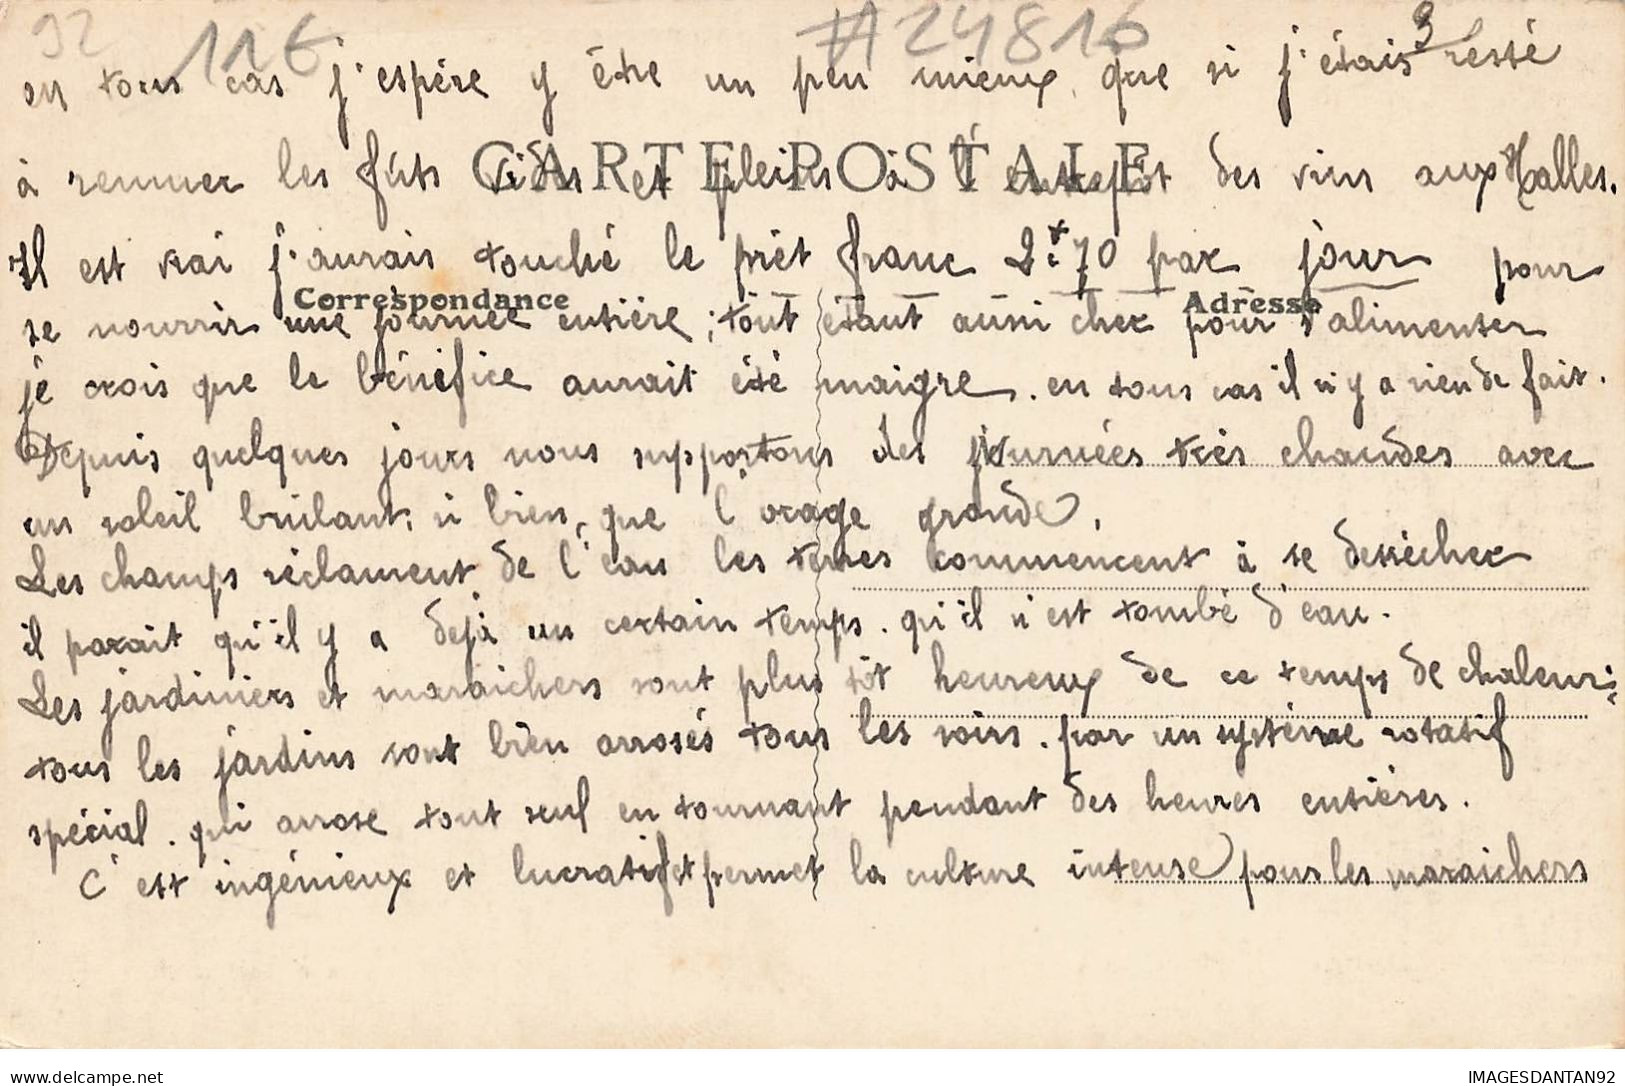 92 11€ #24816 3
en tous cas j'espère y être un peu mieux que si j'étais resté
CARTE POSTALE
à remuer les fûts vides et pleins à l'entrepôt des vins aux Halles.
Il est vrai j'aurais touché le prêt franc 2f70 par jour pour
Correspondance Adresse
se nourrir une journée entière ; tout étant aussi cher pour s'alimenter
je crois que le bénéfice aurait été maigre. en tous cas il n'y a rien de fait.
Depuis quelques jours nous supportons des journées très chaudes avec
un soleil brûlant, si bien, que l'orage gronde.
Les champs réclament de l'eau les terres commencent à se dessécher
il parait qu'il y a dejà un certain temps. qu'il n'est tombé d'eau.
Les jardiniers et maraichers sont plus tôt heureux de ce temps de chaleur;
tous les jardins sont bien arrosés tous les soirs. par un système rotatif
spécial. qui arrose tout seul en tournant pendant des heures entières.
C'est ingénieux et lucratif et permet la culture intense pour les maraichers
delcampe.net IMAGESDANTAN92